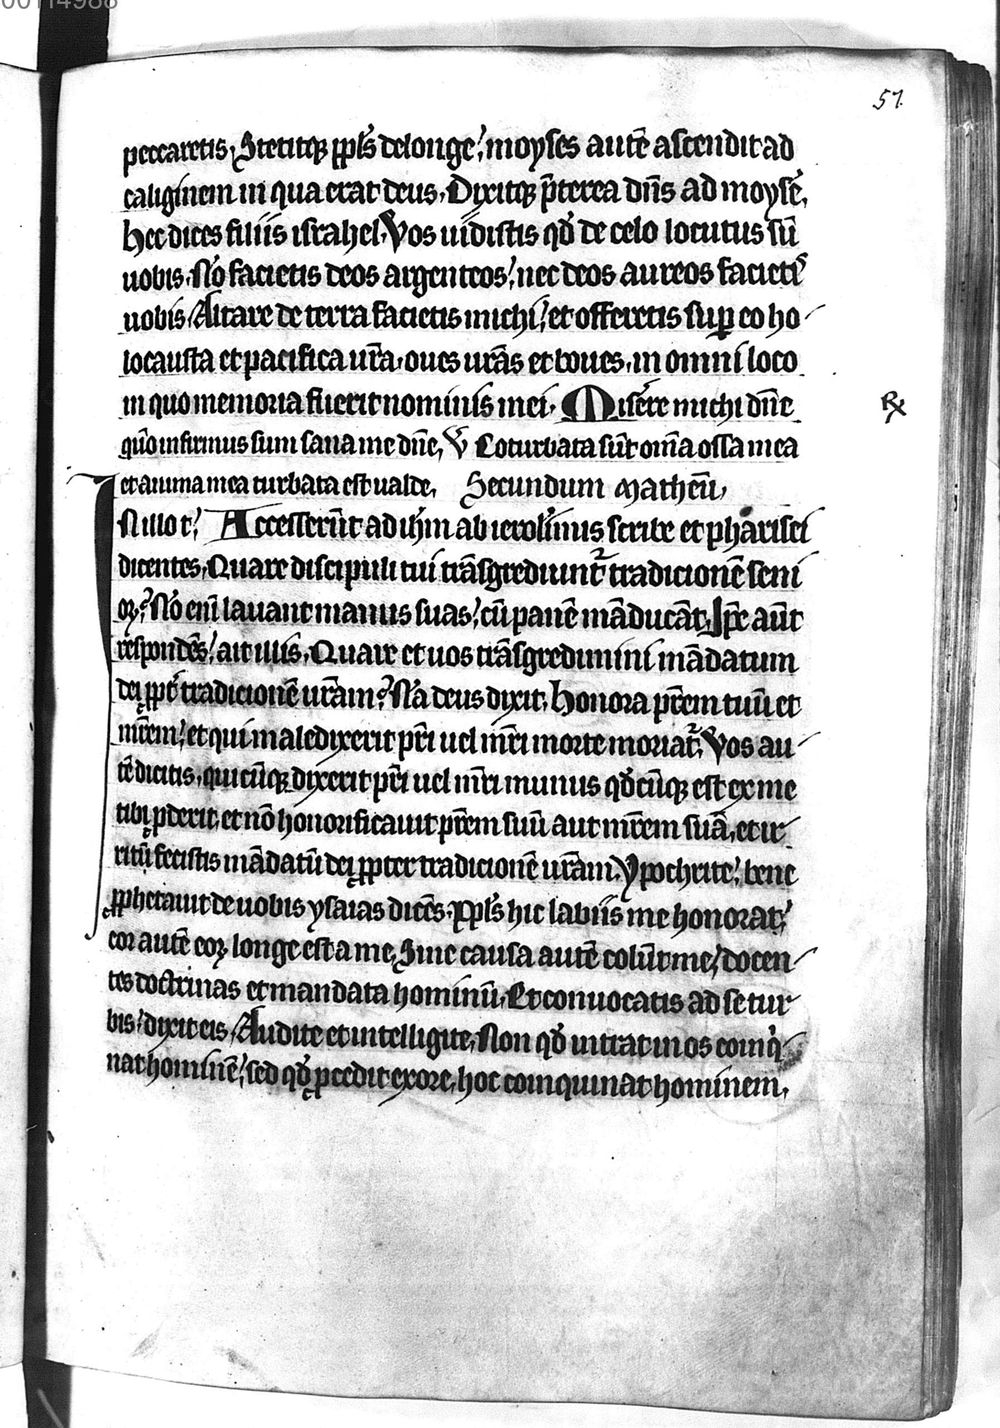 00114988
57.
peccaretis. Stetitqꝫ ppl̄s delonge. moyses autē ascendit ad
caliginem in qua erat deus. Dixitqꝫ p̄terea dn̄s ad moysē.
Hec dices filiis israhel. Vos uidistis qđ de celo locutus sū
uobis. Nō facietis deos argenteos. nec deos aureos facietis
uobis. Altare de terra facietis michi. et offeretis suꝑ eo ho-
locausta et pacifica ur̄a. oues ur̄as et boues. in omni loco
in quo memoria fuerit nominis mei. Miserere michi dn̄e
qm̄ infirmus sum sana me dn̄e. ℣ Coturbata sūt om̄ia ossa mea
℞
et anima mea turbata est ualde. Secundum Matheū.
In illo t̄. Accesserūt ad ih̄m ab ierosolimis scribe et pharisei
dicentes. Quare discipuli tui trāsgrediunt̄ tradicionē seni
oꝝ. Nō enī lauant manus suas. cū panē māducāt. Ip̄e aūt
respondēs. ait illis. Quare et uos trāsgredimini mādatum
dei ꝓpt̄ tradicionē ur̄am. Nā deus dixit. Honora pr̄em tuū et
mr̄em. et qui maledixerit pr̄i uel mr̄i morte moriat̄. Vos au-
tē dicitis. quicūqꝫ dixerit pr̄i uel mr̄i munus qđcūqꝫ est ex me
tibi ꝓderit. et nō honorificauit pr̄em suū aut mr̄em suā. et ir-
ritū fecistis mādatū dei ꝓpter tradicionē ur̄am. Ypochrite. bene
ꝓphetauit de uobis ysaias dicēs. Ppl̄s hic labiis me honorat.
cor autē eoꝝ longe est a me. Sine causa autē colūt me. docen-
tes doctrinas et mandata hominū. Et conuocatis ad se tur-
bis. dixit eis. Audite et intelligite. Non qđ intrat in os coinqui-
nat hominē. sed qđ ꝓcedit ex ore. hoc coinquinat hominem.